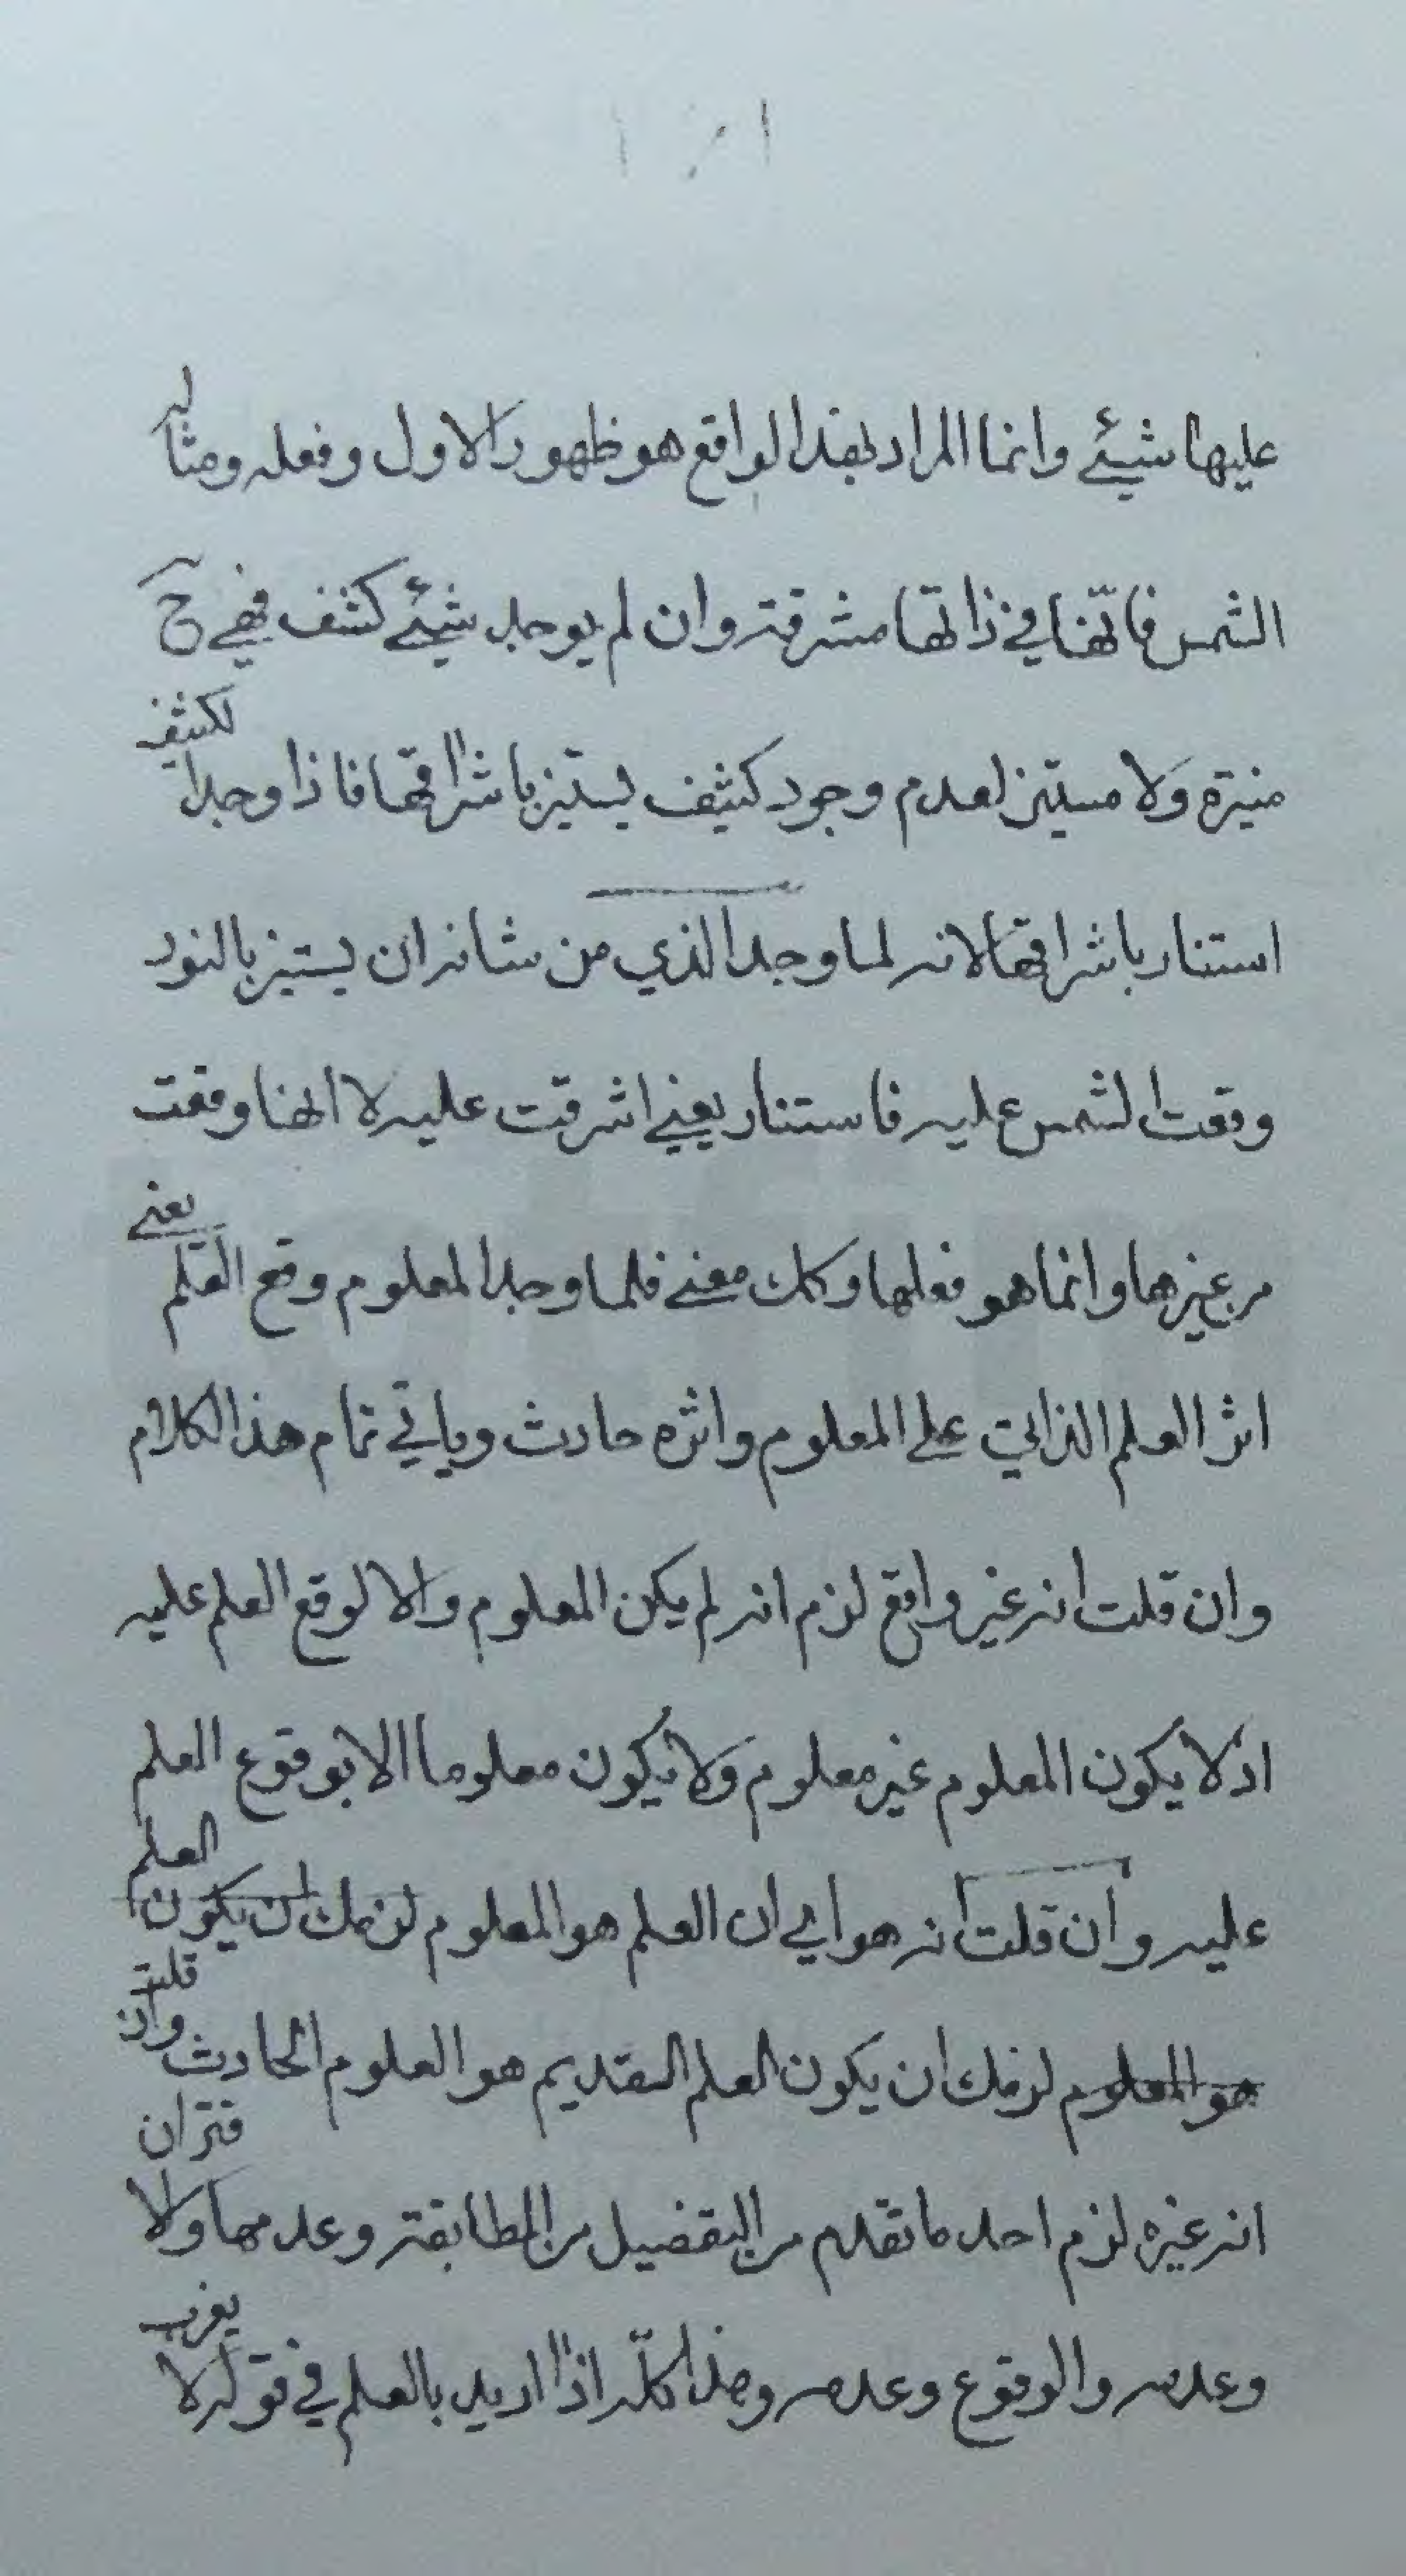 عليها شيئ وانما المراد بهذا الواقع هو ظهور الاول وفعله ومثاله
الشمس فانها في ذاتها مشرقة وان لم يوجد شيئ كثف فهي ح
منيرة ولا مستنير لعدم وجود كثيف يستنير باشراقها فاذا وجد الكثيف
استنار باشراقها لانه لما وجد الذي من شانه ان يستنير بالنور
وقعت الشمس عليه فاستنار يعني اشرقت عليه لا انها وقعت
من غيرها وانما هو فعلها وكك معنى فلما وجد المعلوم وقع العلم يعني
اثر العلم الذاتي على المعلوم واثره حادث وياتي تمام هذا الكلام
وان قلت انه غير واقع لزم انه لم يكن المعلوم والا لوقع العلم عليه
اذ لا يكون المعلوم غير معلوم ولا يكون معلوما الا بوقوع العلم
عليه وان قلت انه هو اي ان العلم هو المعلوم لزمك ان يكون العلم
هو المعلوم لزمك ان يكون العلم القديم هو العلوم الحادث وان قلت
انه غيره لزم احد ما تقدم من التفضيل من المطابقة وعدمها ولا قتران
وعدمه والوقوع وعدمه وهذا كله اذا اريد بالعلم في قوله لا يعزب